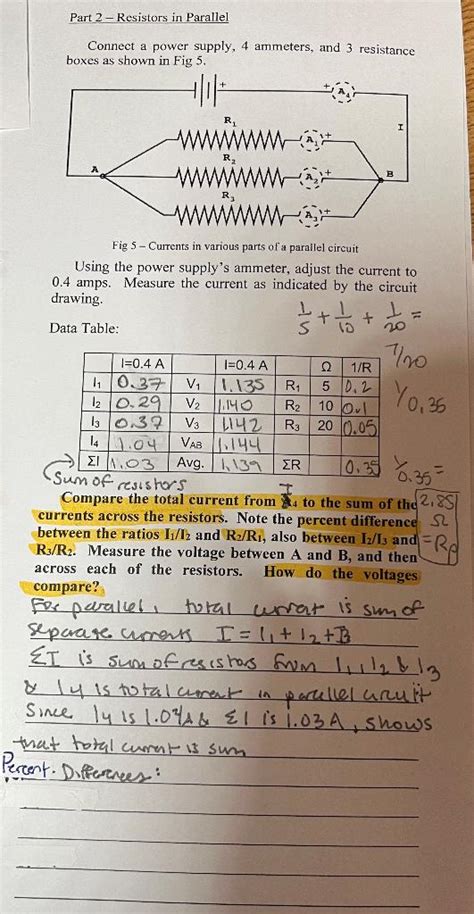 Part 2 – Resistors in Parallel
Connect a power supply, 4 ammeters, and 3 resistance
boxes as shown in Fig 5.
+ + A4
R1 I
A1 +
R2
A A2 + B
R3
A3 +
Fig 5 – Currents in various parts of a parallel circuit
Using the power supply's ammeter, adjust the current to
0.4 amps. Measure the current as indicated by the circuit
drawing.
1/5 + 1/10 + 1/20 =
7/20
Data Table:
I=0.4 A I=0.4 A Ω 1/R
I1 0.37 V1 1.135 R1 5 0.2
I2 0.29 V2 1.140 R2 10 0.1
1/0.35
I3 0.37 V3 1.142 R3 20 0.05
I4 1.04 VAB 1.144
ΣI 1.03 Avg. 1.139 ΣR 0.35
1/0.35 =
Sum of resistors
Compare the total current from I4 to the sum of the
currents across the resistors. Note the percent difference
between the ratios I1/I2 and R2/R1, also between I2/I3 and
R3/R2. Measure the voltage between A and B, and then
across each of the resistors. How do the voltages
compare?
2.85
Ω
= Rp
For parallel, total current is sum of
separate currents I = I1 + I2 + I3
ΣI is sum of resistors from I1, I2 & I3
& I4 is total current in parallel circuit
Since I4 is 1.04A & ΣI is 1.03A, shows
that total current is sum
Percent Differences: